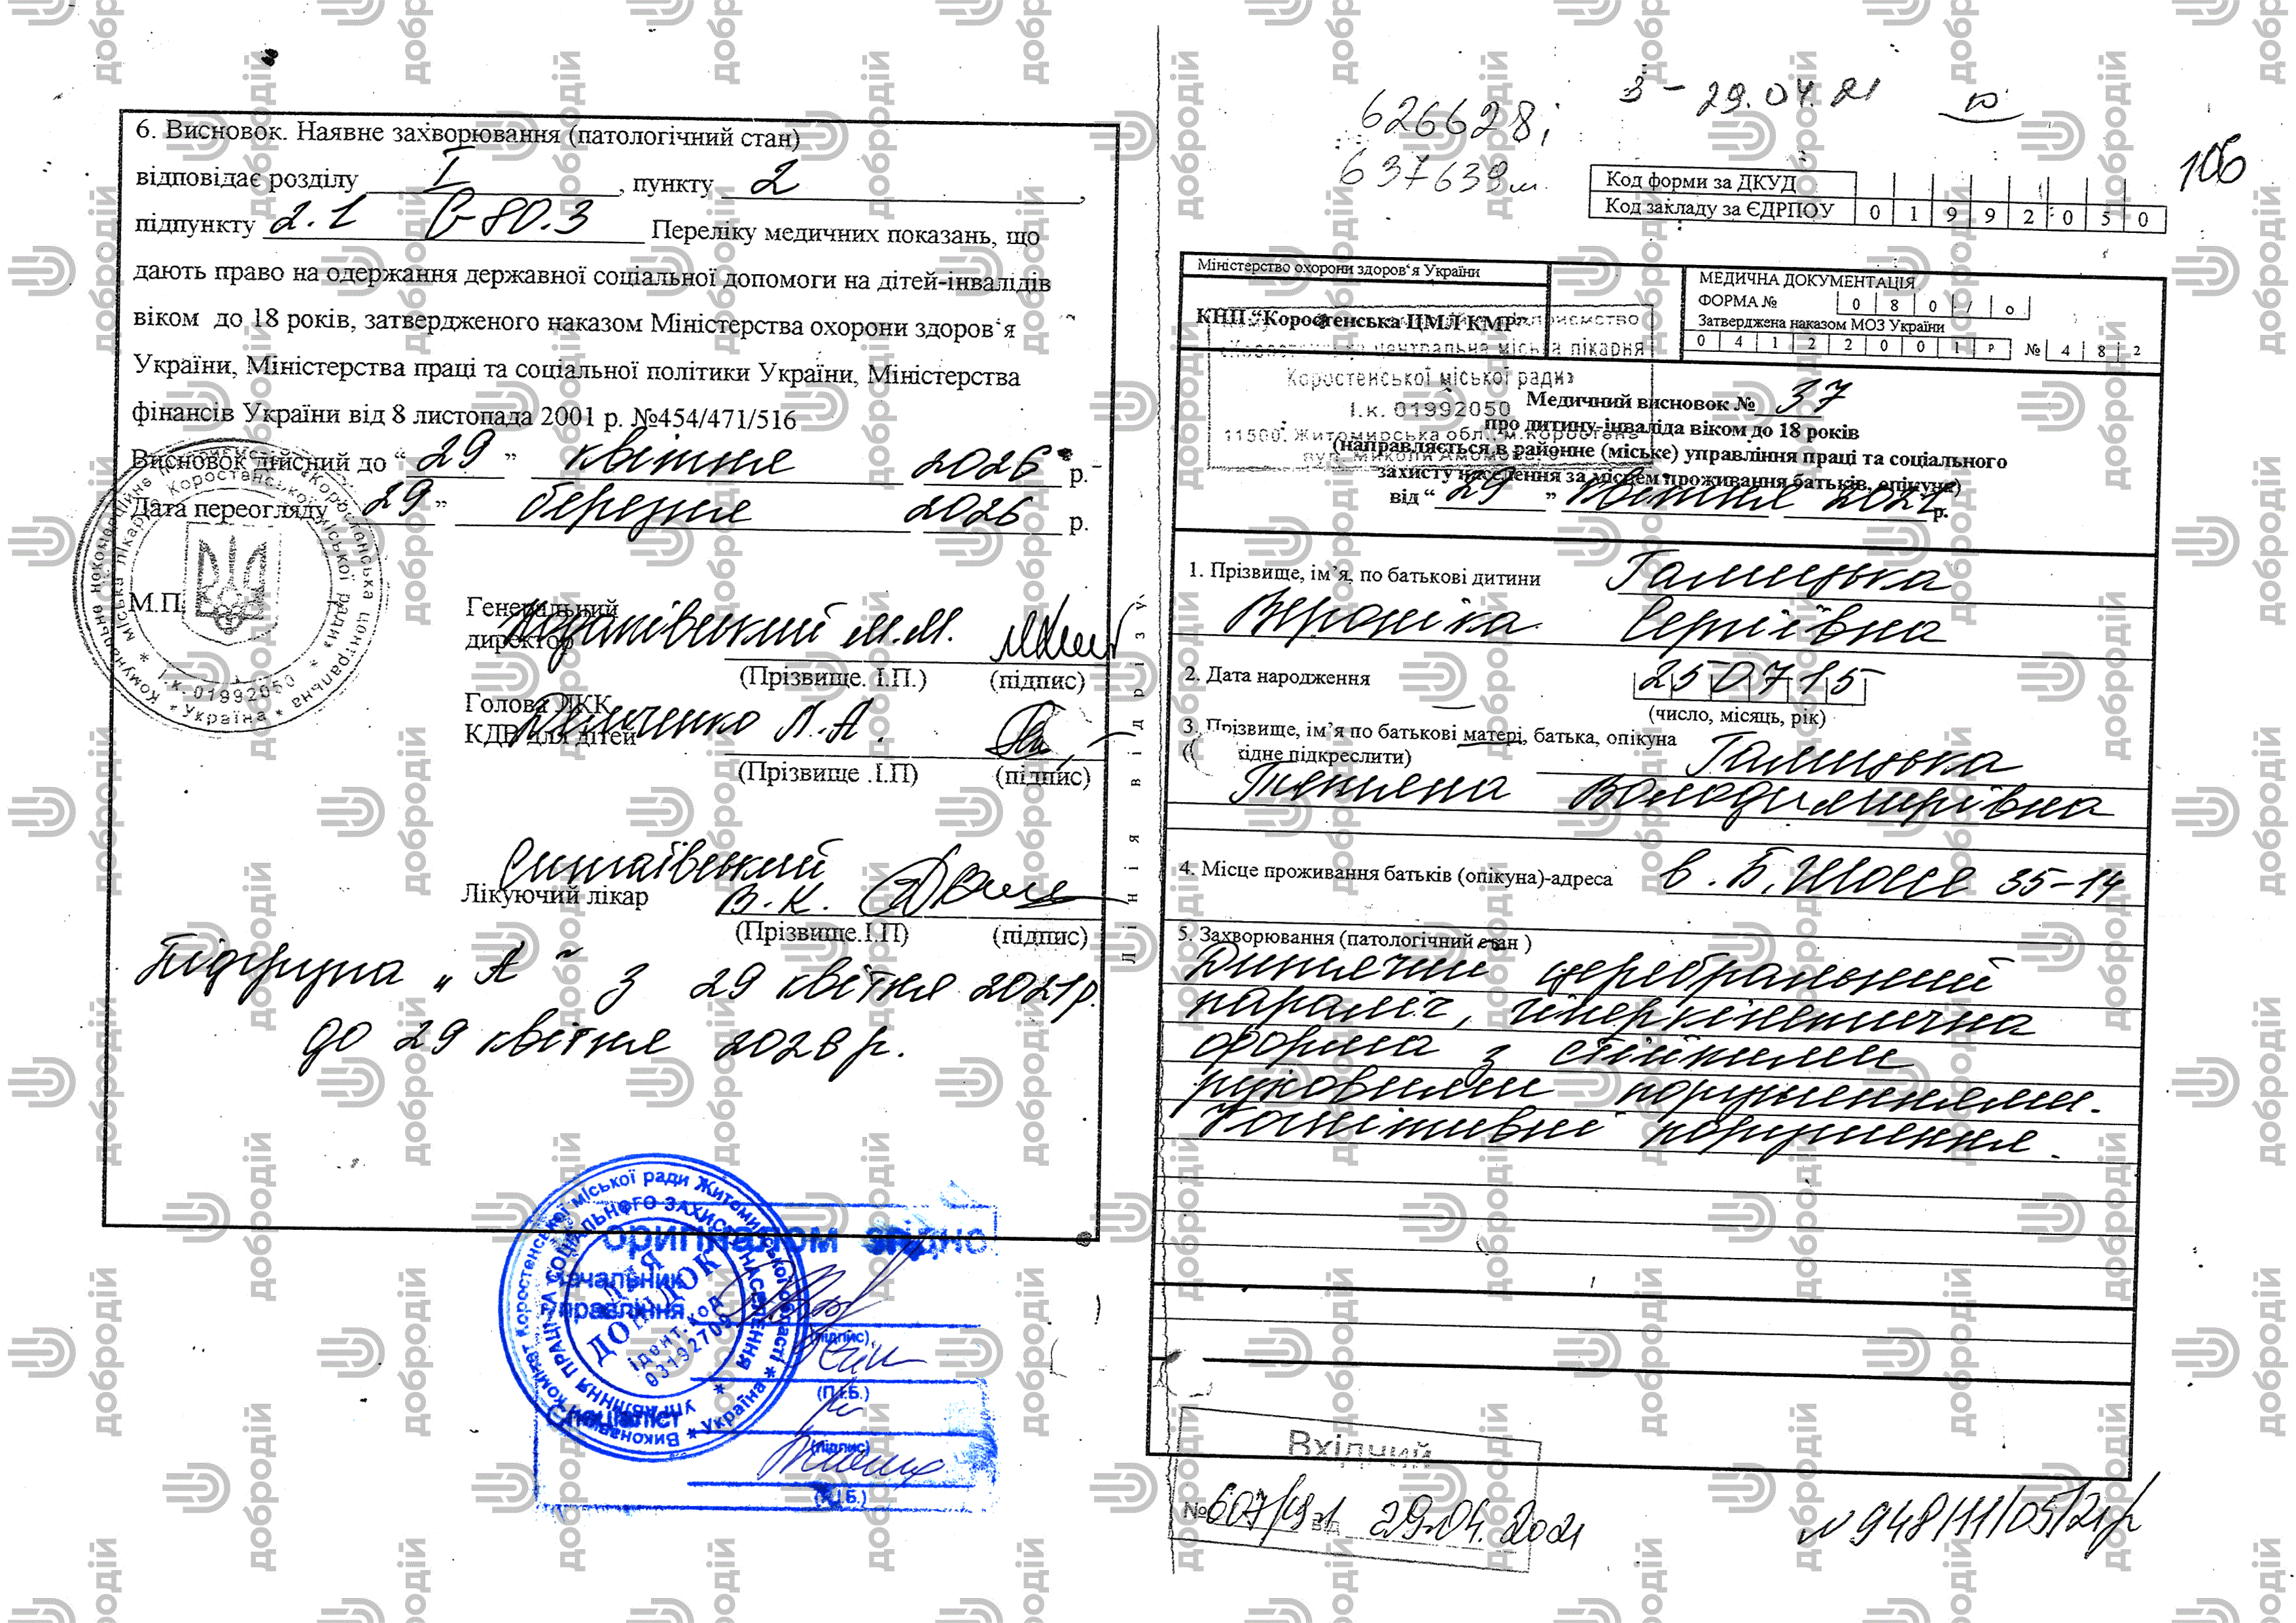 6. Висновок. Наявне захворювання (патологічний стан)
відповідає розділу I, пункту 2,
підпункту 2.1 G-80.3 Переліку медичних показань, що
дають право на одержання державної соціальної допомоги на дітей-інвалідів
віком до 18 років, затвердженого наказом Міністерства охорони здоров'я
України, Міністерства праці та соціальної політики України, Міністерства
фінансів України від 8 листопада 2001 р. №454/471/516
Висновок дійсний до “ 29 ” квітня 2026 р.
Дата переогляду 29 ” березня 2026 р.
М.П.
Генеральний
директор М.М.
(Прізвище. І.П.) (підпис)
Голова ЛКК
КДВ для дітей Л.А.
(Прізвище .І.П) (підпис)
Лікуючий лікар В.К.
(Прізвище.І.П) (підпис)
Підгрупа „А“ з 29 квітня 2021р.
до 29 квітня 2026 р.
Оригіналом згідно
Начальник
управління
(підпис)
(П.І.Б.)
Спеціаліст
(підпис)
(П.І.Б.)
ДЛЯ
ідент. код
03192709
Лінія відрізу
626628;
637639м.
З - 29.04.21
106
Код форми за ДКУД
Код закладу за ЄДРПОУ 0 1 9 9 2 0 5 0
Міністерство охорони здоров'я України
КНП “Коростенська ЦМЛ КМР”
Коростенської міської ради»
І.к. 01992050
11500, Житомирська обл., м.Коростень
МЕДИЧНА ДОКУМЕНТАЦІЯ
ФОРМА № 0 8 0 / о
Затверджена наказом МОЗ України
0 4 1 2 2 0 0 1 Р № 4 8 2
Медичний висновок № 37
про дитину-інваліда віком до 18 років
(направляється в районне (міське) управління праці та соціального
захисту населення за місцем проживання батьків, опікуна)
від “ 29 ” квітня 2021 р.
1. Прізвище, ім'я, по батькові дитини Галицька
Вероніка Сергіївна
2. Дата народження 250715
(число, місяць, рік)
3. Прізвище, ім'я по батькові матері, батька, опікуна
підкреслити) Галицька
Тетяна Володимирівна
4. Місце проживання батьків (опікуна)-адреса в. Б. Шосе 35-14
5. Захворювання (патологічний стан )
Дитячий церебральний
параліч, гіперкінетична
форма з стійкими
руховими порушеннями.
Когнітивні порушення.
Вхідний
№ 607/ від 29.04.2021
N 948/11/05/21р
добродій